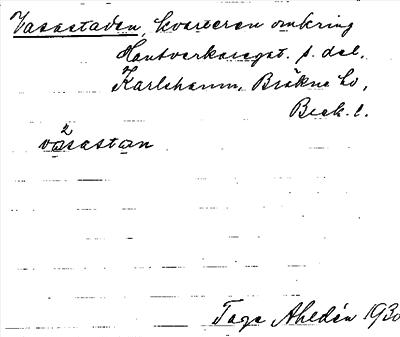 Vasastaden, kvarteren omkring
Hantverkaregat. s. del.
Karlshamn, Bräkne hd,
Blek. l.
2
vasastan
Tage Ahldén 1930